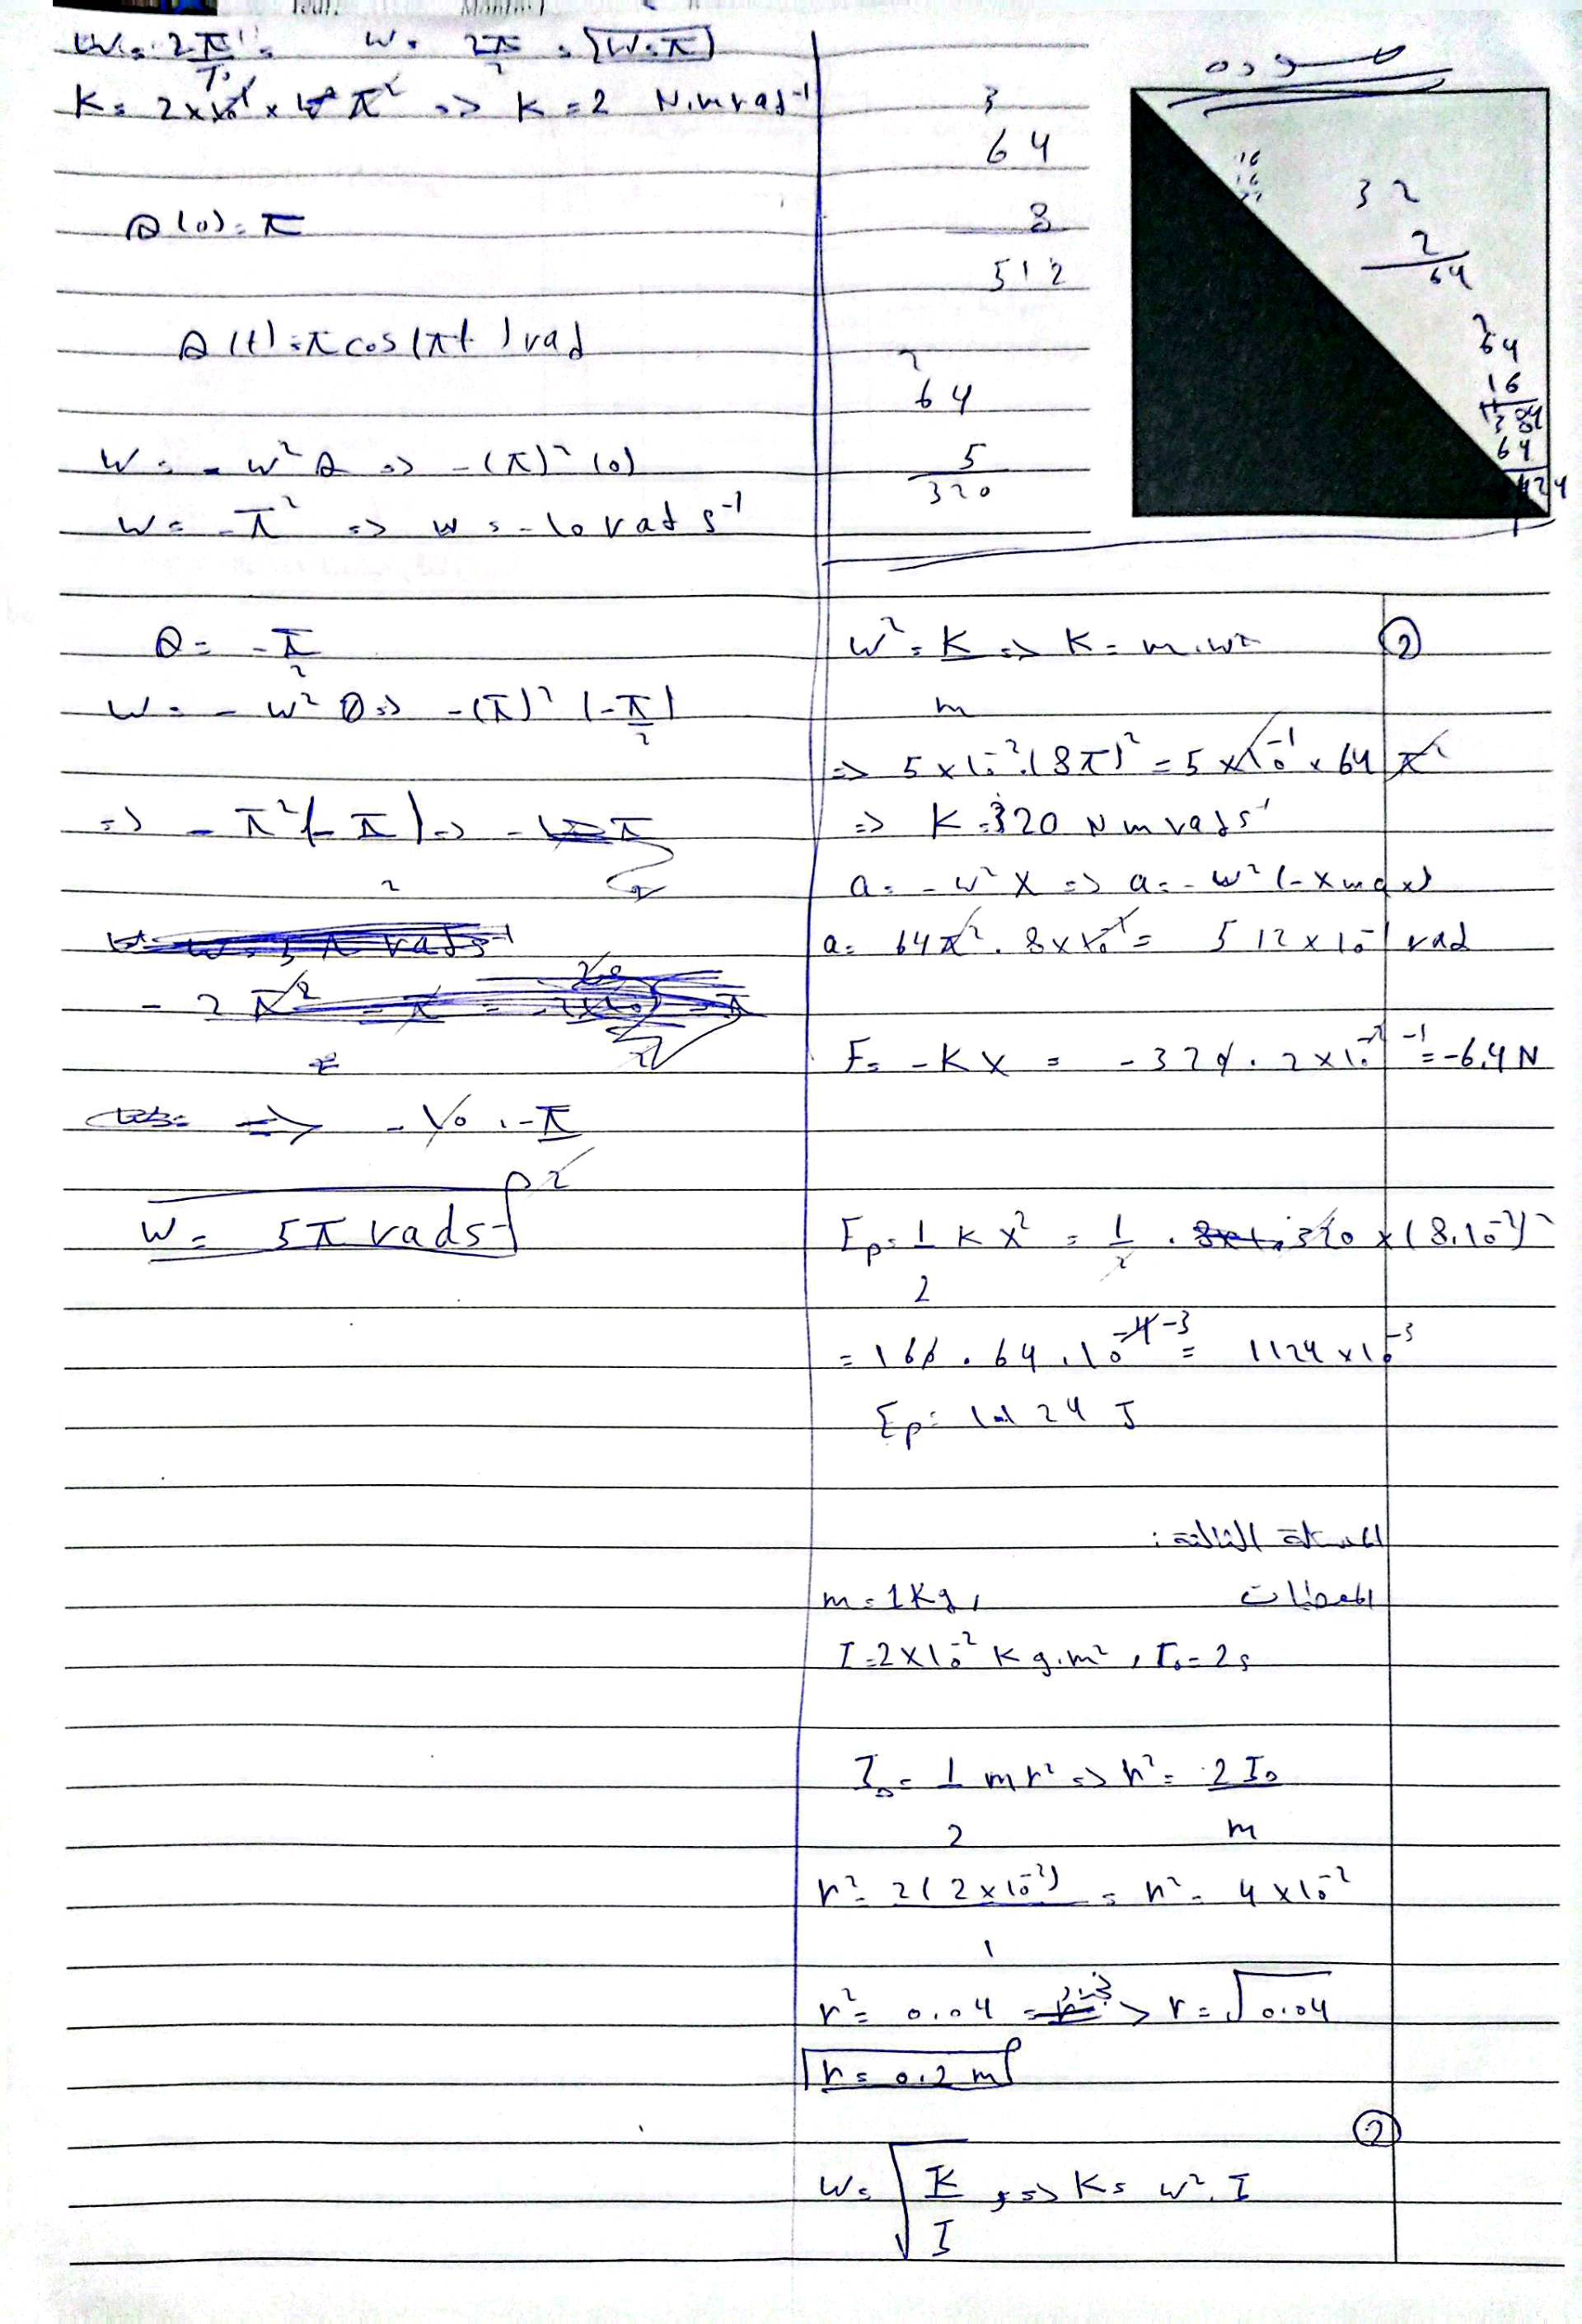 W = 2π/T₀ = W = 2π/2 = W = π
K = 2×10⁻¹ × π² => K = 2 N.m rad⁻¹
θ(0) = π
θ(t) = π cos(πt) rad
W = -w²θ => -(π)²(0)
W = -π² => w = -10 rad s⁻¹
θ = -π/2
W = -w²θ => -(π)²(-π/2)
=> -π²(-π/2) =>
=> -10 . -π/2
W = 5π rad s⁻
مسوده
3
64
8
512
2
64
5
320
16
16
32
2
64
2
64
16
384
64
②
W² = K/m => K = m.w²
=> 5×10⁻².(8π)² = 5×10⁻¹ × 64 π²
=> K = 320 N m rad s⁻¹
a = -w²x => a = -w²(-xmax)
a = 64π² . 8×10⁻¹ = 512×10⁻¹ rad
F = -Kx = -320 . 2×10⁻² ⁻¹ = -6.4 N
Ep = 1/2 K x² = 1/2 . 320 × (8.10⁻²)²
= 160 . 64 . 10⁻⁴ ⁻³ = 1124×10⁻³
Ep = 1.124 J
المسألة الثالثة:
المعطيات
m = 1 Kg,
I = 2×10⁻² Kg.m², T₀ = 2s
I₀ = 1/2 m r² => r² = 2I₀/m
r² = 2(2×10⁻²)/1 = r² = 4×10⁻²
r² = 0.04 => نجذر r = √0.04
r = 0.2 m
②
W = √(K/I) => K = w².I